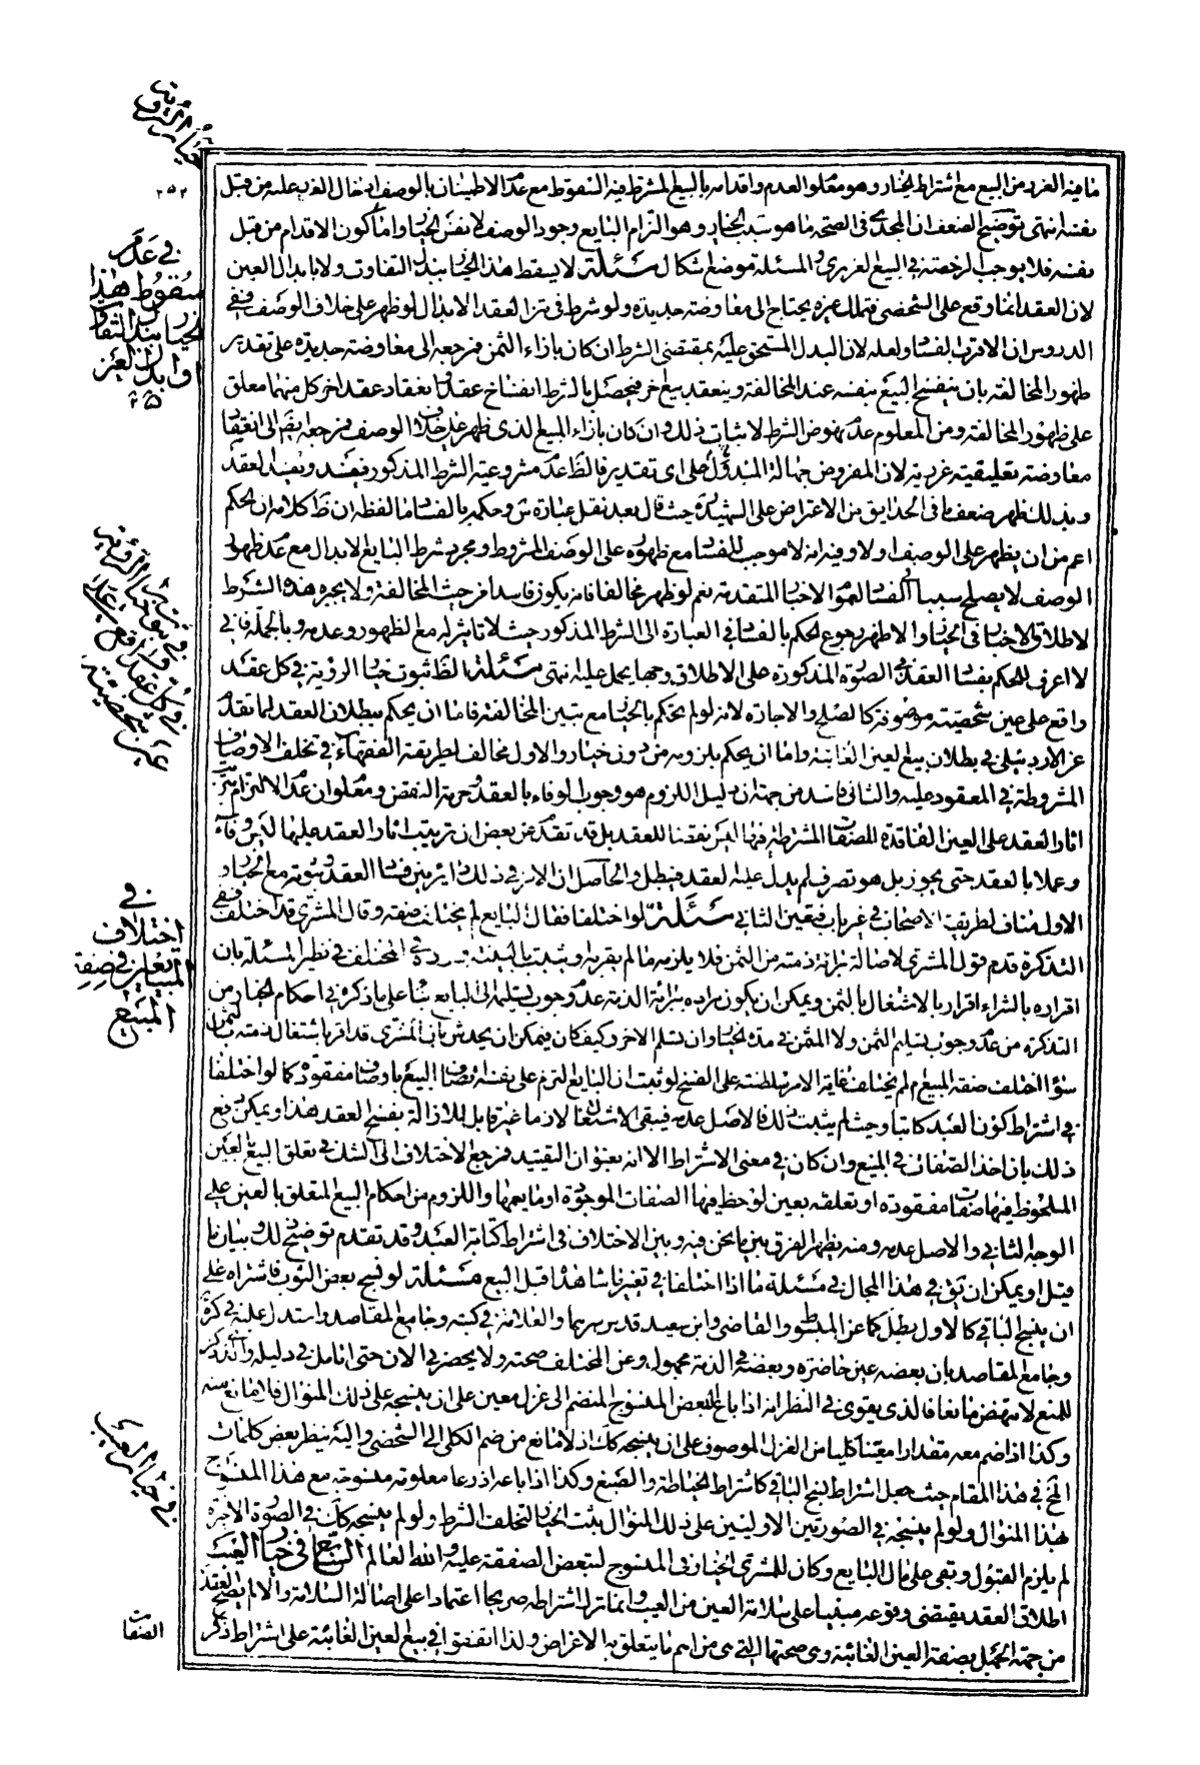 خيار الرؤية
٢٥٢
ما فيه الغرر من البيع مع اشتراط الخيار وهو معلوم العدم واقدامه بالبيع المشترط فيه السقوط مع عدم الاطمينان بالوصف ادخال الغرر عليه من قبل
نفسه انتهى توضيح الضعف ان المجدي في الصحة ما هو سبب الخيار وهو التزام البايع وجود الوصف لا نفس الخيار واما كون الاقدام من قبل
نفسه فلا يوجب الرخصة في البيع الغرري والمسئلة موضع اشكال مسئلة لا يسقط هذا الخيار ببذل التفاوت ولا بابدال العين
لان العقد انما وقع على الشخصي فتملك غيره يحتاج الى معاوضة جديدة ولو شرط في متن العقد الابدال لو ظهر على خلاف الوصف ففي
الدروس ان الاقرب الفساد ولعله لان البدل المستحق عليه بمقتضى الشرط ان كان بازاء الثمن فمرجعه الى معاوضة جديدة على تقدير
ظهور المخالفة بان ينفسخ البيع بنفسه عند المخالفة وينعقد بيع اخر فيحصل بالشرط انفساخ عقد وانعقاد عقد اخر كل منهما معلق
على ظهور المخالفة ومن المعلوم عدم نهوض الشرط لاثبات ذلك وان كان بازاء المبيع الذي ظهر على خلاف الوصف فمرجعه ايضا الى انعقاد
معاوضة تعليقية غررية لان المفروض جهالة المبدل وعلى اى تقدير فالظ عدم مشروعية الشرط المذكور فيفسد ويفسد العقد
وبذلك ظهر ضعف ما في الحدايق من الاعتراض على الشهيد ره حيث قال بعد نقل عبارة س وحكمه بالفساد ما لفظه ان ظ كلامه ان الحكم
اعم من ان يظهر على الوصف او لا وفيه انه لا موجب للفساد مع ظهوره على الوصف المشروط ومجرد شرط البايع الابدال مع عدم ظهور
الوصف لا يصلح سببا للفساد لعموم الاخبار المتقدمة نعم لو ظهر مخالفا فانه يكون فاسدا من حيث المخالفة ولا يجبره هذا الشرط
لاطلاق الاخبار في الخيار والاظهر رجوع الحكم بالفساد في العبارة الى الشرط المذكور حيث لا تاثير له مع الظهور وعدمه وبالجملة فاني
لا اعرف للحكم بفساد العقد في الصورة المذكورة على الاطلاق وجها يحمل عليه انتهى مسئلة الظ ثبوت خيار الرؤية في كل عقد
واقع على عين شخصية موصوفة كالصلح والاجارة لانه لو لم يحكم بالخيار مع تبين المخالفة فاما ان يحكم ببطلان العقد لما تقدم
عن الاردبيلي في بطلان بيع العين الغائبة واما ان يحكم بلزومه من دون خيار والاول مخالف لطريقة الفقهاء في تخلف الاوصاف
المشروطة في المعقود عليه والثاني فاسد من جهة ان دليل اللزوم هو وجوب الوفاء بالعقد وحرمة النقض ومعلوم ان عدم الالتزام بترتيب
اثار العقد على العين الفاقدة للصفات المشترطة فيها ليس نقضا للعقد بل قد تقدم عن بعض ان ترتيب اثار العقد عليها ليس وفاء
وعملا بالعقد حتى يجوز بل هو تصرف لم يدل عليه العقد فيبطل والحاصل ان الامر في ذلك دائر بين فساد العقد وثبوته مع الخيار و
الاول مناف لطريقة الاصحاب في غير باب فتعين الثاني مسئلة لو اختلفا فقال البايع لم يختلف صفته وقال المشتري قد اختلف ففي
التذكرة قدم قول المشتري لاصالة براءة ذمته من الثمن فلا يلزمه ما لم يقر به او يثبت بالبينة ورده في المختلف في نظير المسئلة بان
اقراره بالشراء اقرار بالاشتغال بالثمن ويمكن ان يكون مراده ببراءة الذمة عدم وجوب تسليمه الى البايع بناء على ما ذكره في احكام الخيار من
التذكرة من عدم وجوب تسليم الثمن ولا المثمن في مدة الخيار وان تسلم الاخر وكيف كان فيمكن ان يخدش بان المشتري قد اقر باشتغال ذمته بالثمن
سواء اختلف صفة المبيع ام لم يختلف غاية الامر سلطنته على الفسخ لو ثبت ان البايع التزم على نفسه اتصاف البيع باوصاف مفقودة كما لو اختلفا
في اشتراط كون العبد كاتبا وحيث لم يثبت ذلك فالاصل عدمه فيبقى الاشتغال لازما غير قابل للازالة بفسخ العقد هذا ويمكن دفع
ذلك بان اخذ الصفات في المبيع وان كان في معنى الاشتراط الا انه بعنوان التقييد فمرجع الاختلاف الى الشك في تعلق البيع بالعين
الملحوظ فيها صفات مفقودة او تعلقه بعين لوحظ فيها الصفات الموجودة او ما يعمها واللزوم من احكام البيع المتعلق بالعين على
الوجه الثاني والاصل عدمه ومنه يظهر الفرق بين ما نحن فيه وبين الاختلاف في اشتراط كتابة العبد وقد تقدم توضيح ذلك وبيان ما
قيل او يمكن ان يق في هذا المجال في مسئلة ما اذا اختلفا في تغير ما شاهداه قبل البيع مسئلة لو نسج بعض الثوب فاشتراه على
ان ينسج الباقي كالاول بطل كما عن المبسوط والقاضي وابن سعيد قدس سرهما والعلامة في كتبه وجامع المقاصد واستدل عليه في كرة
وجامع المقاصد بان بعضه عين حاضرة وبعضه في الذمة مجهول وعن المختلف صحته ولا يحضرني الان حتى اتامل في دليله والذي ذكر
للمنع لا ينهض مانعا فالذي يقوى في النظر انه اذا باع البعض المنسوج المنضم الى غزل معين على ان ينسجه على ذلك المنوال فلا مانع منه
وكذا اذا ضم معه مقدارا معينا كليا من الغزل الموصوف على ان ينسجه كذلك اذ لا مانع من ضم الكلي الى الشخصي واليه ينظر بعض كلمات
المخ في هذا المقام حيث جعل اشتراط نسج الباقي كاشتراط الخياطة والصبغ وكذا اذا باعه اذرعا معلومة منسوجة مع هذا المنسوج
بهذا المنوال ولو لم ينسجه في الصورتين الاوليين على ذلك المنوال يثبت الخيار لتخلف الشرط ولو لم ينسجه كذلك في الصورة الاخيرة
لم يلزم القبول وبقي على مال البايع وكان للمشتري الخيار في المنسوج لتبعض الصفقة عليه والله العالم السابع في خيار العيب
اطلاق العقد يقتضي وقوعه مبنيا على سلامة العين من العيب وانما ترك اشتراطه صريحا اعتمادا على اصالة السلامة والا لم يصح العقد
من جهة الجهل بصفة العين الغائبة وهي صحتها التي هي من اهم ما يتعلق به الاغراض ولذا اتفقوا في بيع العين الغائبة على اشتراط ذكر
في عدم
سقوط هذا
الخيار ببذل التفاوت
او ابدال العين
في ثبوت خيار الرؤية
في كل عقد واقع على
عين شخصية
في
اختلاف
المتبايعين في صفة
المبيع
في خيار العيب
الصفات